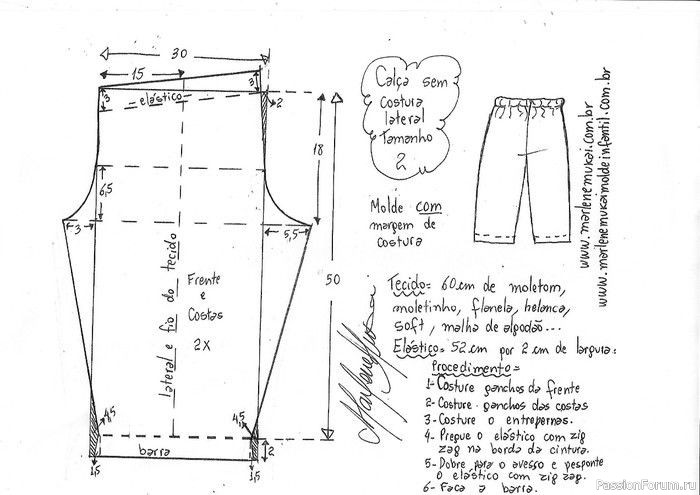 30
15
3
3
elástico
2
6,5
18
3
5,5
50
lateral e fio do tecido
Frente
e
Costas
2X
4,5
4,5
barra
2
1,5
1,5
Calça sem
costura
lateral
Tamanho
2
Molde com
margem de
costura
www.marlenemukai.com.br
www.marlenemukaimoldeinfantil.com.br
Tecido= 60cm de moletom,
moletinho, flanela, helanca,
soft, malha de algodão...
Elástico= 52cm por 2cm de largura=
Procedimento=
1- Costure ganchos da frente
2- Costure ganchos das costas
3- Costure o entrepernas.
4- Pregue o elástico com zig
zag na borda da cintura.
5- Dobre para o avesso e pesponte
o elástico com zig zag.
6- Faça a barra.
PassionForum.ru